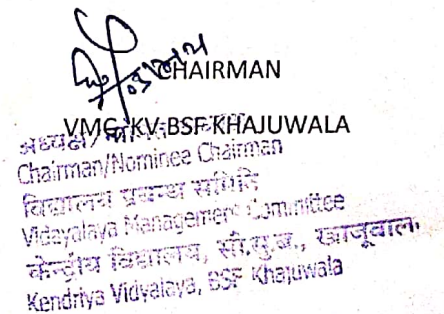 CHAIRMAN
VMC KV BSF KHAJUWALA
अध्यक्ष/
Chairman/Nominee Chairman
विद्यालय प्रबन्ध समिति
Vidayalaya Management Committee
केन्द्रीय विद्यालय, सी.सु.ब., खाजूवाला
Kendriya Vidyalaya, BSF Khajuwala